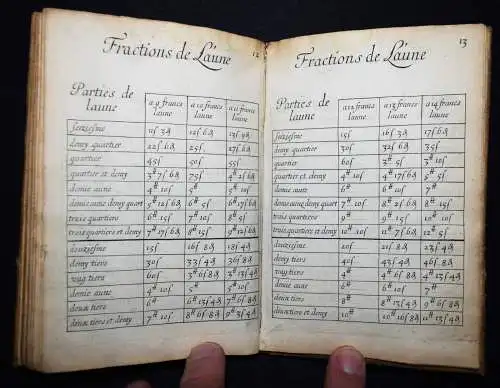 Fractions de L'aune 12
Parties de laune a 9 francs laune a 10 francs laune a 11 francs laune
ſeizieſme 11ſ 3d 12ſ 6d 13ſ 9d
demy quartier 22ſ 6d 25ſ 27ſ 6d
quartier 45ſ 50ſ 55ſ
quartier et demy 3# 7ſ 6d 75ſ 4# 2ſ 6d
demie aune 4# 10ſ 5# 5# 10ſ
demie aune demy quart 5# 12ſ 6d 6# 5ſ 6# 17ſ 6d
trois quartiers 6# 15ſ 7# 10ſ 8# 5ſ
trois quartiers et demy 7# 17ſ 6d 8# 15ſ 9# 12ſ 6d
douzieſme 15ſ 16ſ 8d 18ſ 4d
demy tiers 30ſ 33ſ 4d 36ſ 8d
vng tiers 60ſ 3# 6ſ 8d 3# 13ſ 4d
demie aune 4# 10ſ 5# 5# 10ſ
deux tiers 6# 6# 13ſ 4d 7# 6ſ 8d
deux tiers et demy 7# 10ſ 8# 6ſ 8d 9# 3ſ 4d
Fractions de L'aune 13
Parties de laune a 12 francs laune a 13 francs laune a 14 francs laune
ſeizieſme 15ſ 16ſ 3d 17ſ 6d
demy quartier 30ſ 32ſ 6d 35ſ
quartier 60ſ 3# 5ſ 3# 10ſ
quartier et demy 4# 10ſ 4# 17ſ 6d 5# 5ſ
demie aune 6# 6# 10ſ 7#
demie aune demy quart 7# 10ſ 8# 2ſ 6d 8# 15ſ
trois quartiers 9# 9# 15ſ 10# 10ſ
trois quartiers et demy 10# 10ſ 11# 7ſ 6d 12# 5ſ
douzieſme 20ſ 21ſ 8d 23ſ 4d
demy tiers 40ſ 43ſ 4d 46ſ 8d
vng tiers 4# 4# 6ſ 8d 4# 13ſ 4d
demie aune 6# 6# 10ſ 7#
deux tiers 8# 8# 13ſ 4d 9# 6ſ 8d
deux tiers et demy 10# 10# 16ſ 8d 11# 13ſ 4d